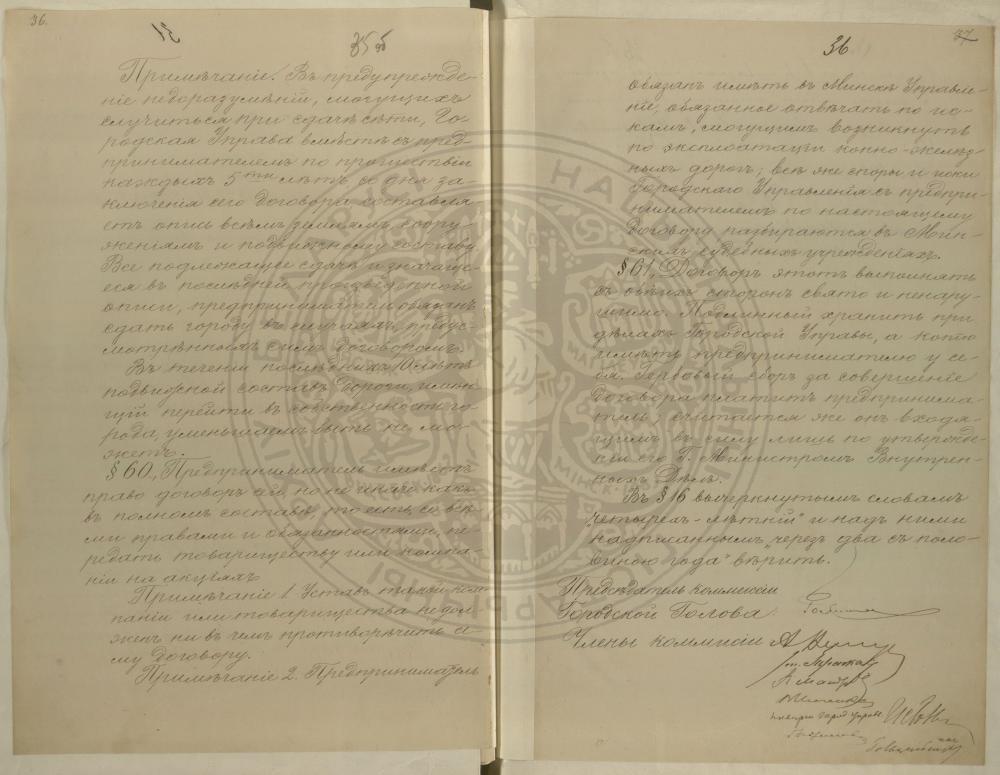 36.
35 об
Примѣчаніе. Въ предупрежде-
ніе недоразумѣній, могущихъ
случиться при сдачѣ сѣти, Го-
родская Управа вмѣстѣ съ пред-
принимателемъ по прошествіи
каждыхъ 5ти лѣтъ со дня за-
ключенія сего договора составля-
етъ опись всѣмъ зданіямъ, соору-
женіямъ и подвижному составу.
Все подлежащее сдачѣ и значаще-
еся въ послѣдней произведенной
описи, предприниматель обязанъ
сдать городу въ случаяхъ, предус-
мотрѣнныхъ симъ договоромъ.
Въ теченіи послѣднихъ 10 лѣтъ
подвижной составъ дороги, имею-
щій перейти въ собственность го-
рода, уменьшаемъ быть не мо-
жетъ.
§ 60., Предприниматель имѣетъ
право договоръ сей, но не иначе какъ
въ полномъ составѣ, то есть, со все-
ми правами и обязанностями, пе-
редать товариществу или компа-
ніи на акціяхъ
Примѣчаніе 1. Уставъ такой ком-
паніи или товарищества не дол-
женъ ни въ чемъ противорѣчить се-
му договору.
Примѣчаніе 2. Предприниматель
36
37
обязанъ имѣть въ Минскѣ Управле-
ніе, обязанное отвѣчать по ис-
камъ, могущимъ возникнуть
по эксплоатаціи конно-желѣз-
ныхъ дорогъ; всѣ же споры и иски
Городскаго Управленія съ предпри-
нимателемъ по настоящему
договору разбираются въ Мин-
скихъ судебныхъ учрежденіяхъ.
§ 61, Договоръ этотъ выполнять
съ обѣихъ сторонъ свято и ненару-
шимо. Подлинный хранить при
дѣлахъ Городской Управы, а копію
имѣть предпринимателю у се-
бя. Гербовый сборъ за совершеніе
договора платитъ предпринима-
тель, считается же онъ входя-
щимъ въ силу лишь по утвержде-
ніи его Г. Министромъ Внутрен-
нихъ Дѣлъ.
Въ § 16 вычеркнутымъ словамъ
"четырехъ-лѣтній" и надъ ними
надписаннымъ "черезъ два съ поло-
виною года" вѣрить.
Предсѣдатель коммисіи
Городской Голова
Члены коммисіи